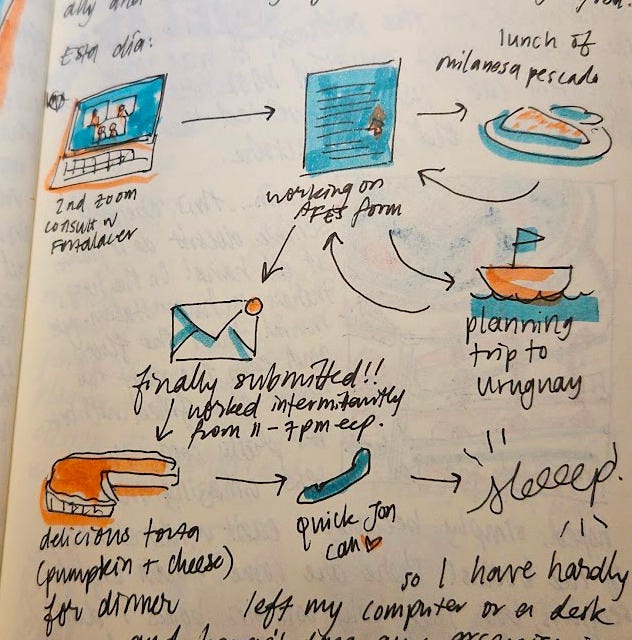 ally and
Esta día:
lunch of
milanesa pescado
2nd zoom
consult w
working on
AFES form
planning
trip to
Uruguay
finally submitted!!
worked intermittantly
from 11-7pm eep.
sleeep!
delicious torta
(pumpkin + cheese)
for dinner
quick Jon
call
so I have hardly
left my computer or a desk